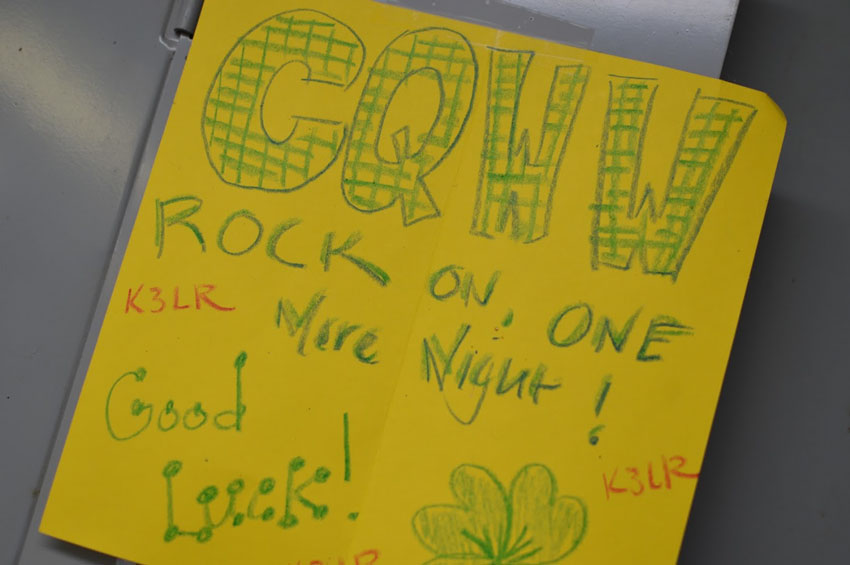 CQWW
ROCK ON, ONE
K3LR
More Night!
Good
Luck!
K3LR